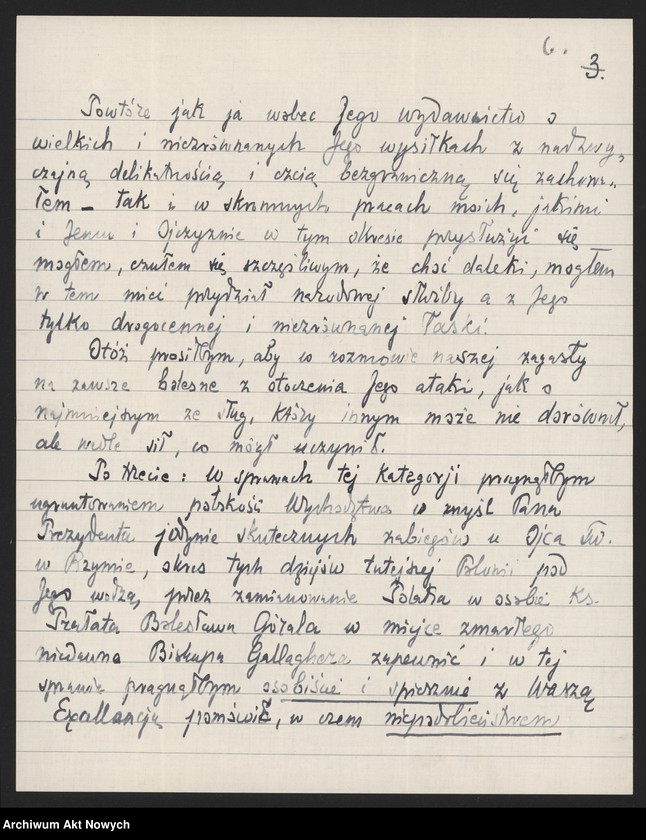 6.
3.
Powtóre jak ja wobec Jego wydawnictw o
wielkich i niezrównanych Jego wysiłkach z nadzwy-
czajną delikatnością i czcią bezgraniczną się zachowa-
łem – tak i w skromnych pracach moich, jakiemi
i Jemu i Ojczyznie w tym okresie przysłużyć się
mogłem, czułem się szczęśliwym, że choć daleki, mogłem
w tem mieć przydział narodowej służby a z Jego
tylko drogocennej i niezrównanej Łaski.
Otóż prosiłbym, aby w rozmowie naszej zagasły
na zawsze bolesne z otoczenia Jego ataki, jak o
najmniejszym ze sług, który innym może nie dorównał,
ale wedle sił, co mógł uczynił.
Po trzecie: w sprawach tej kategorji pragnąłbym
ugruntowaniem polskość Wychodztwa w myśl Pana
Prezydenta jedynie skutecznych zabiegów u Ojca Św.
w Rzymie, okres tych dziejów tutejszej Polonii pod
Jego wodzą, przez zamianowanie Polaka w osobie Ks.
Prałata Bolesława Górala w miejce zmarłego
niedawno Biskupa Gallaghera zapewnić i w tej
sprawie pragnąłbym osobiście i spiesznie z Waszą
Excellencją pomówić, w czem niepodobieństwem
Archiwum Akt Nowych